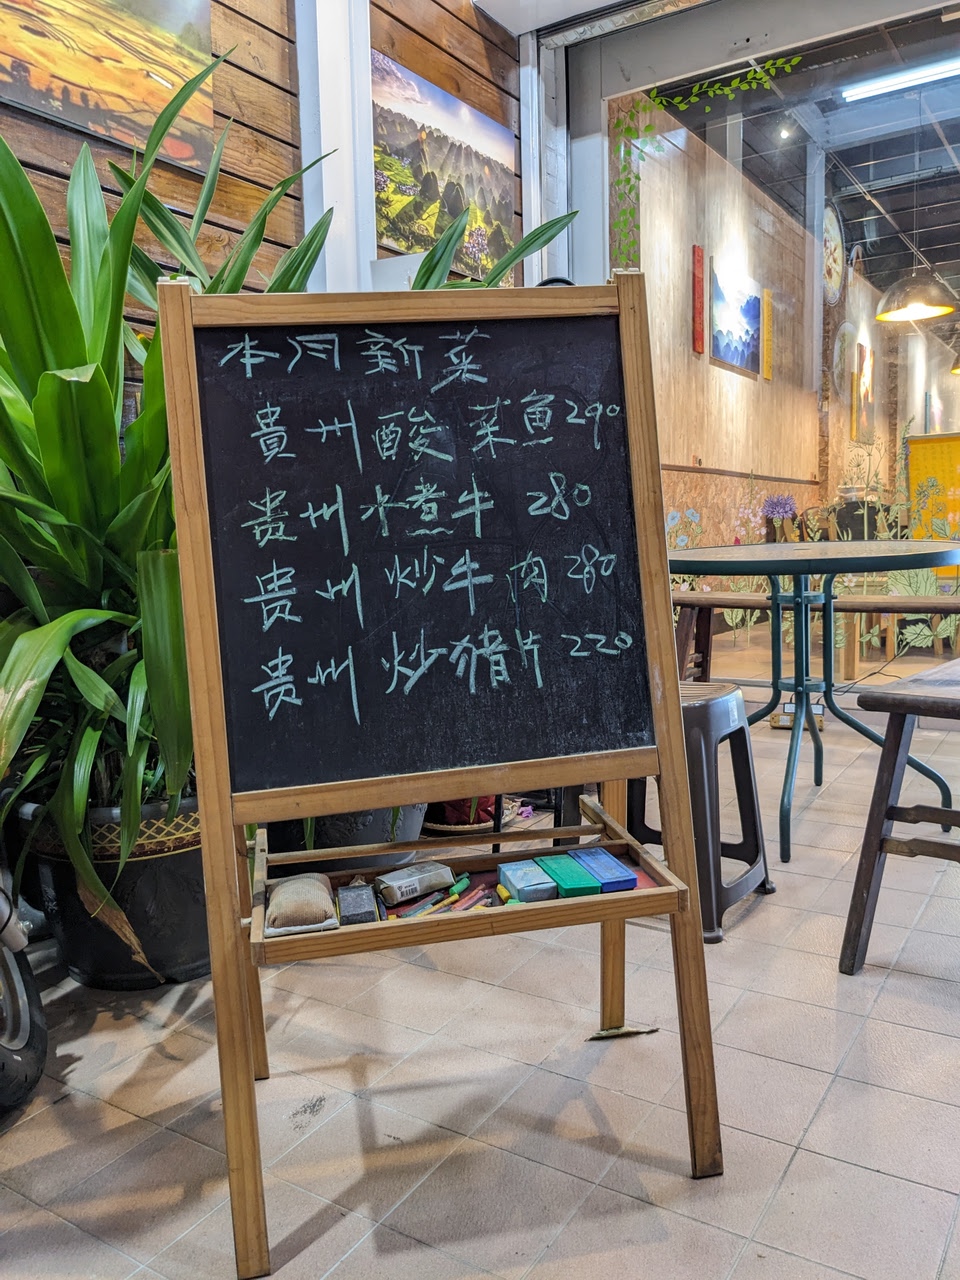 本月新菜
貴州酸菜魚290
贵州水煮牛 280
贵州炒牛肉 280
贵州炒猪片 220